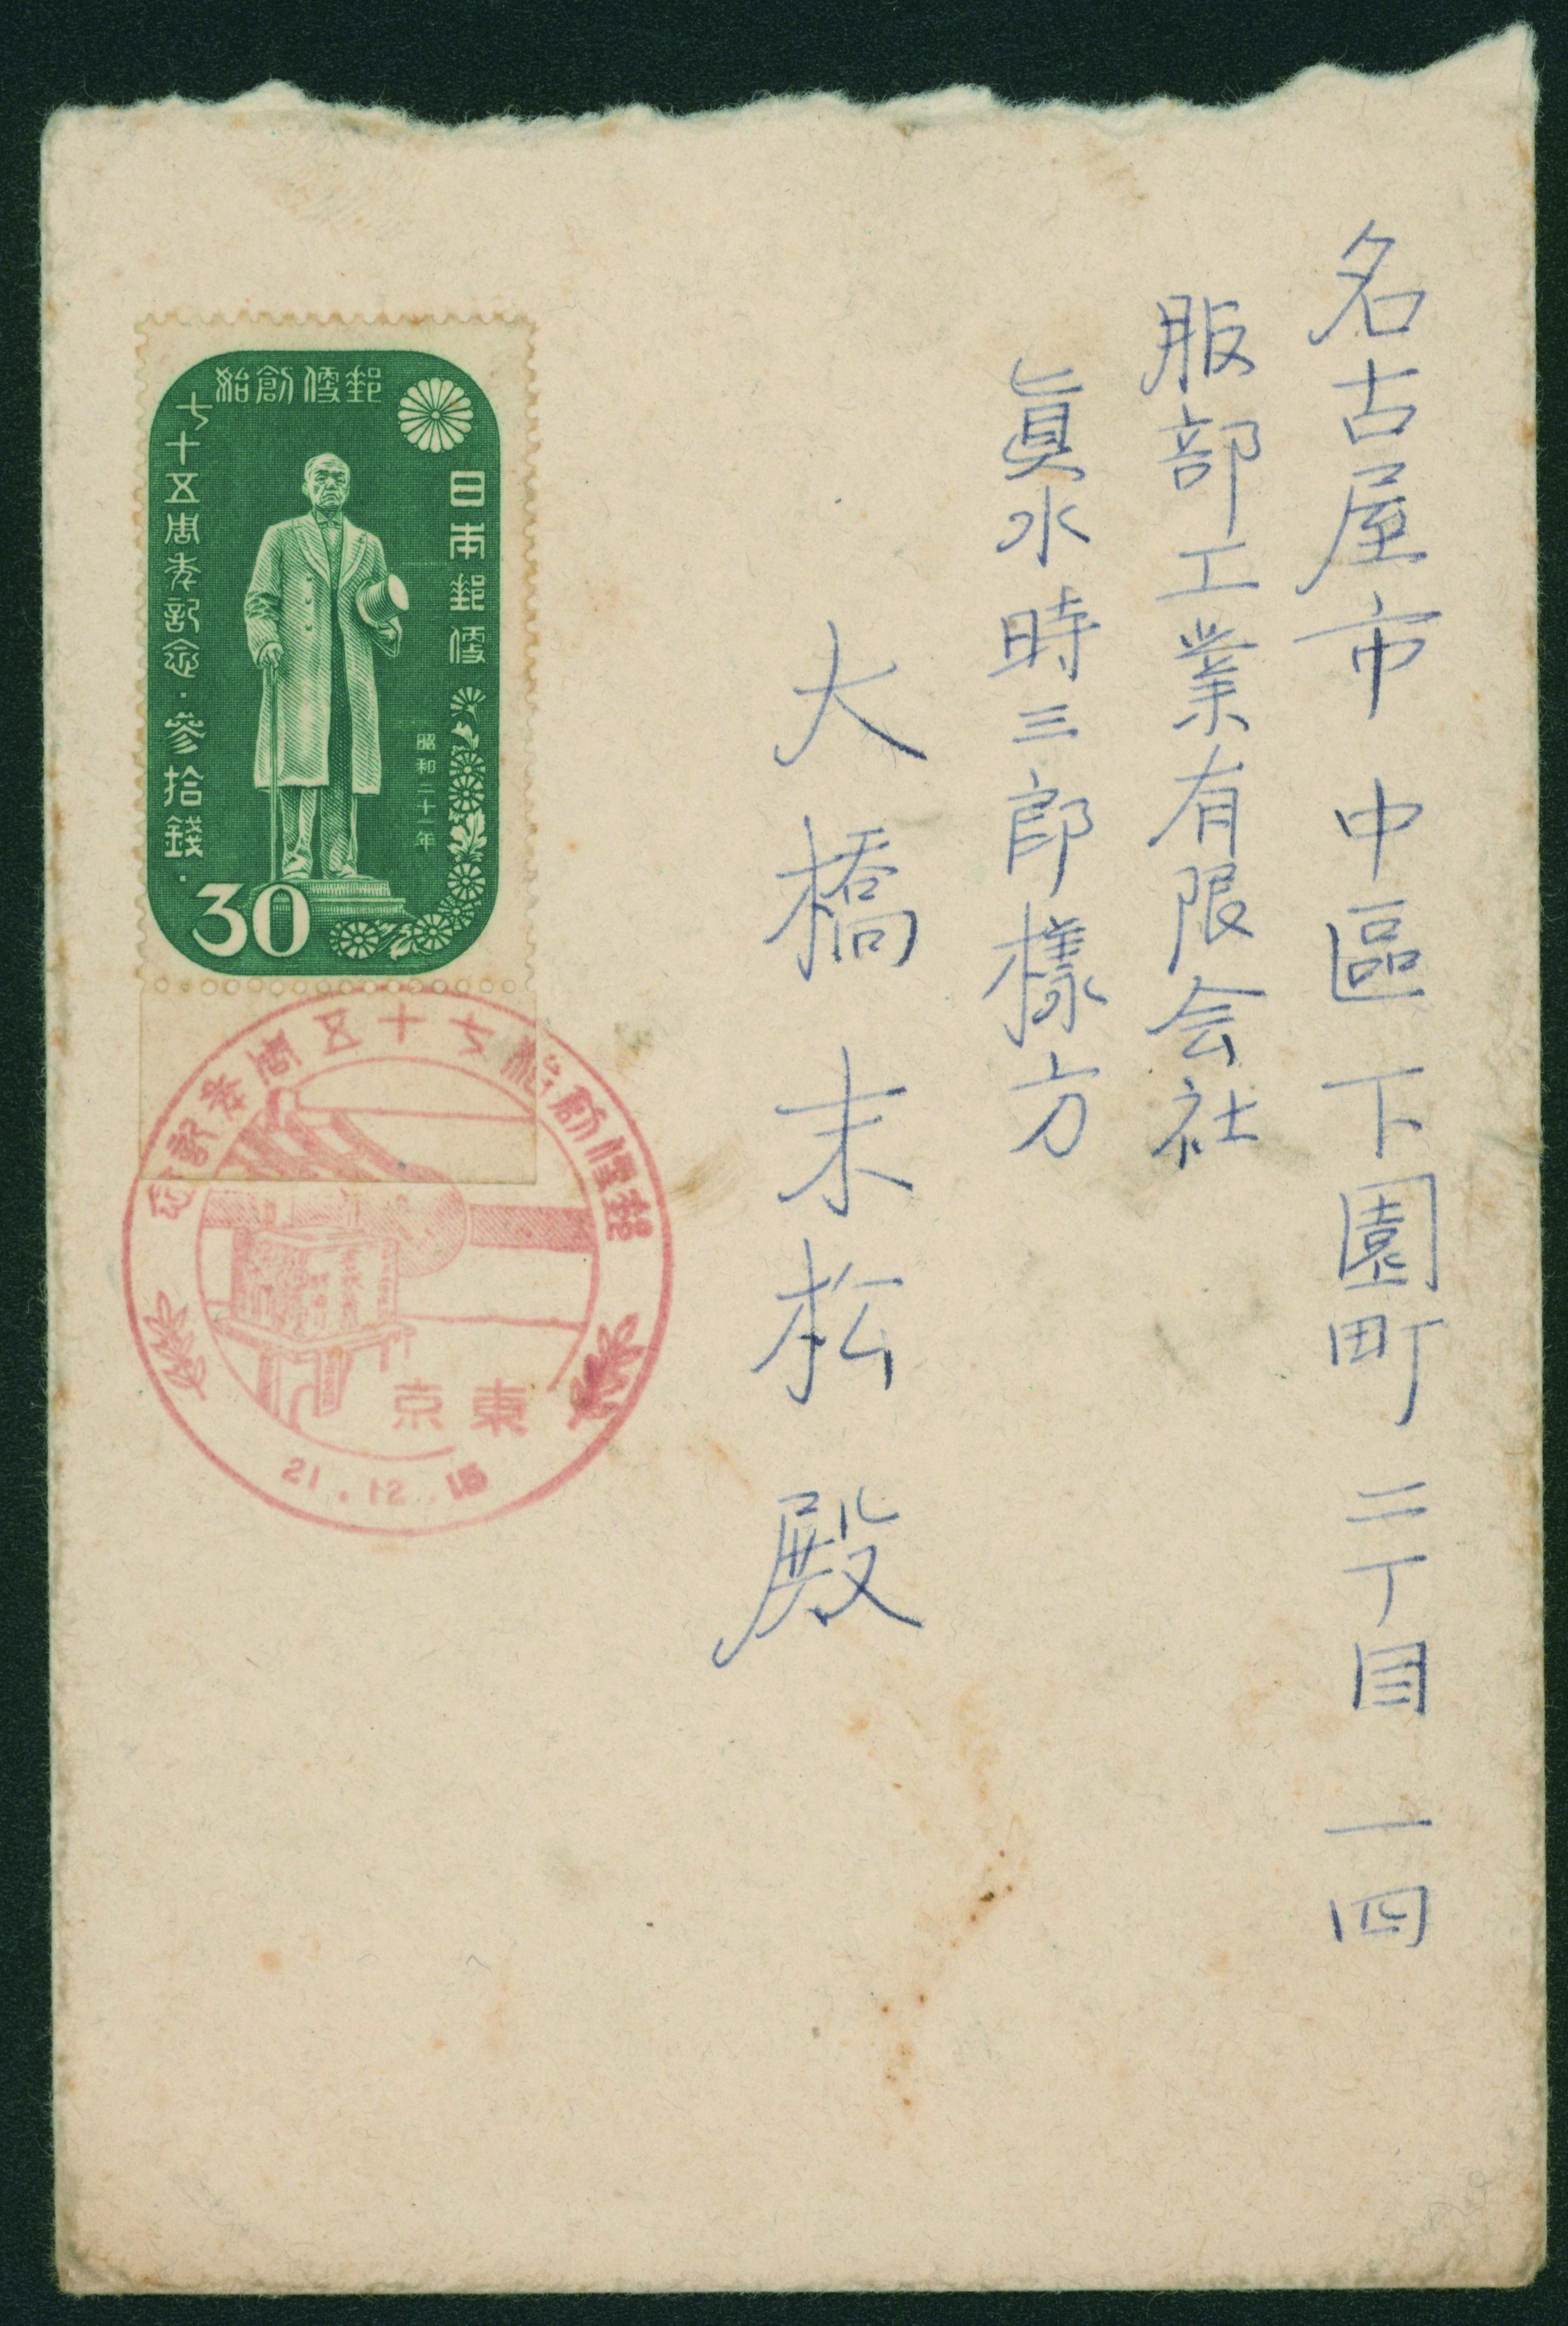 名古屋市中區下園町二丁目一四
服部工業有限会社
眞水時三郎様方
大橋末松殿
郵便創始
七十五周年記念・参拾錢・
日本郵便
昭和二十一年
30
郵便創始七十五周年記念
東京
21.12.15